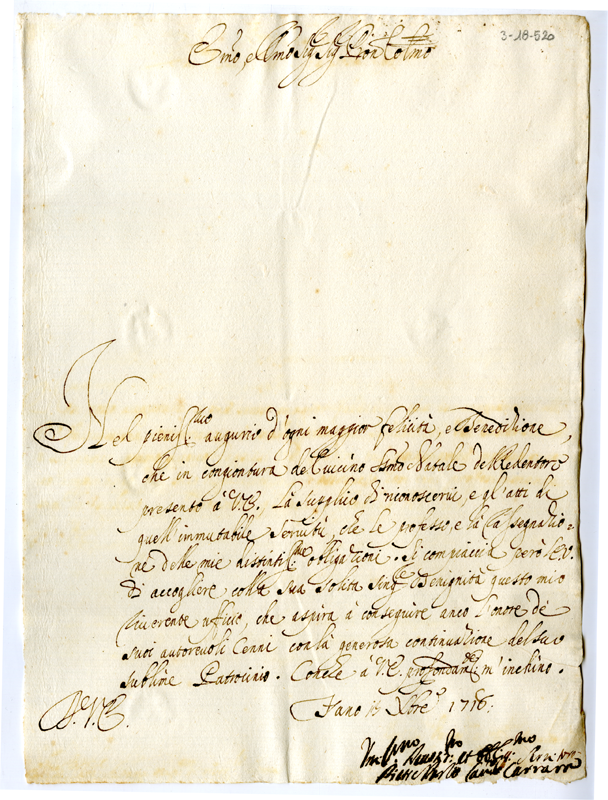 3-18-520
Emo, e Rmo Sig Sig Pron Colmo
Nel pieniss:mo augurio d'ogni maggior felicità, e Benedizione,
che in congiontura del uicino Sto Natale del Redentore
presento à V.E. La supplico di riconoscerui, e gl'atti di
quell'immutabile Seruitù, che le professo, e la rassegnazio=
ne delle mie distintiss:me obligazioni. Si compiaccia però l'E.V.
di accogliere colla sua solita Benignità questo mio
riuerente uffizio, che aspira à conseguire anco l'onore de
suoi autoreuoli Cenni con la generosa continuazione del suo
sublime Patrocinio. Con che à V.E. profondam:te m'inchino.
Fano Xbre 1716:
D. V. E.
Vmilmo
Carrara